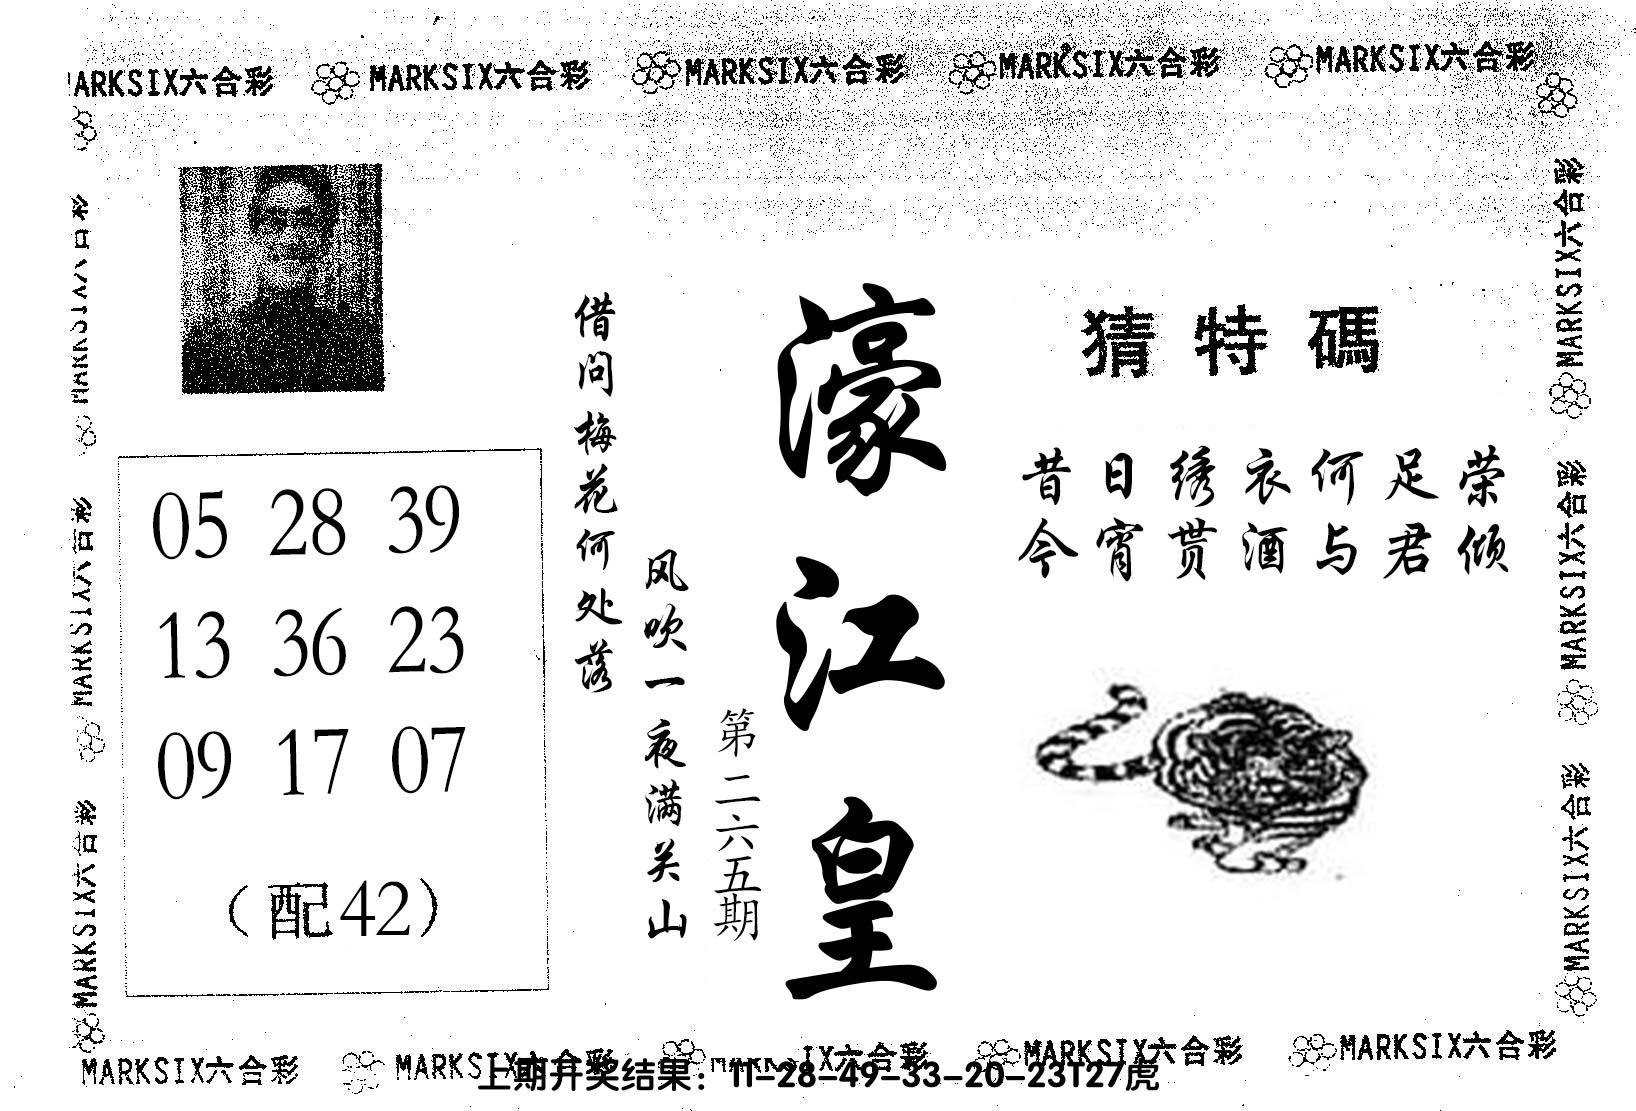 MARKSIX六合彩 MARKSIX六合彩 MARKSIX六合彩 MARKSIX六合彩 MARKSIX六合彩
猜特碼
昔日绣衣何足荣
今宵贳酒与君倾
濠江皇
第二六五期
借问梅花何处落
风吹一夜满关山
05 28 39
13 36 23
09 17 07
（配42）
MARKSIX六合彩
MARKSIX六合彩
MARKSIX六合彩
MARKSIX六合彩
MARKSIX六合彩
MARKSIX六合彩
MARKSIX六合彩 MARKSIX六合彩 IX六合彩 MARKSIX六合彩 MARKSIX六合彩
上期开奖结果：11-28-49-33-20-23T27虎